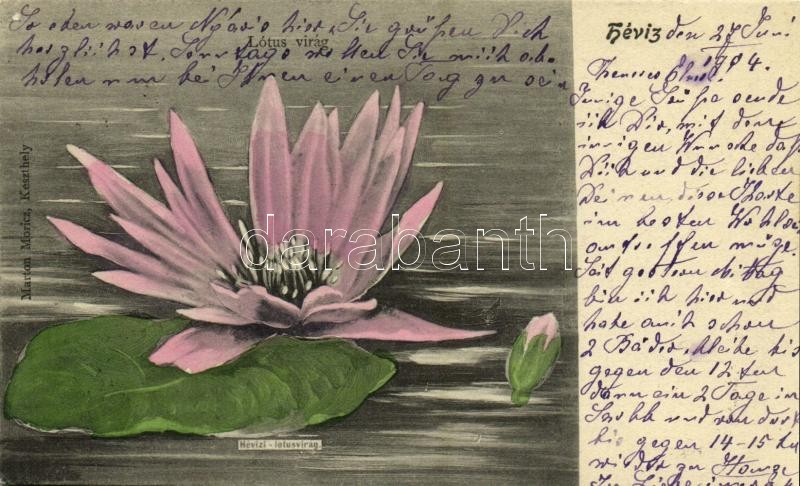 So eben waren Nyári's hier, Sie grüßen Dich
herzlichst. Sonntag wollten Sie mich ab-
holen um bei Ihnen einen Tag zu sein
Lótus virág
Hévíz den 27 Juni
1904.
Innige Grüße sende
ich Dir, mit dem
innigen Wunsche daß
Dich und die lieben
Deinen, diese Karte
im besten Wohlsein
antreffen möge.
Seit gestern Mittag
bin ich hier und
habe auch schon
2 Bäder, bleibe bis
gegen den 12 ten
dann ein 2 Tage in
und von dort
bis gegen 14-15 ten
wieder zu Hause
Marton Moricz, Keszthely
darabanth
Hévizi - lótusvirág.